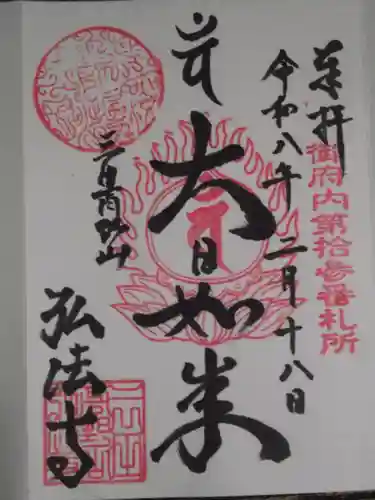 奉拝
御府内第拾参番札所
令和八年二月十八日
大日如来
弘法寺